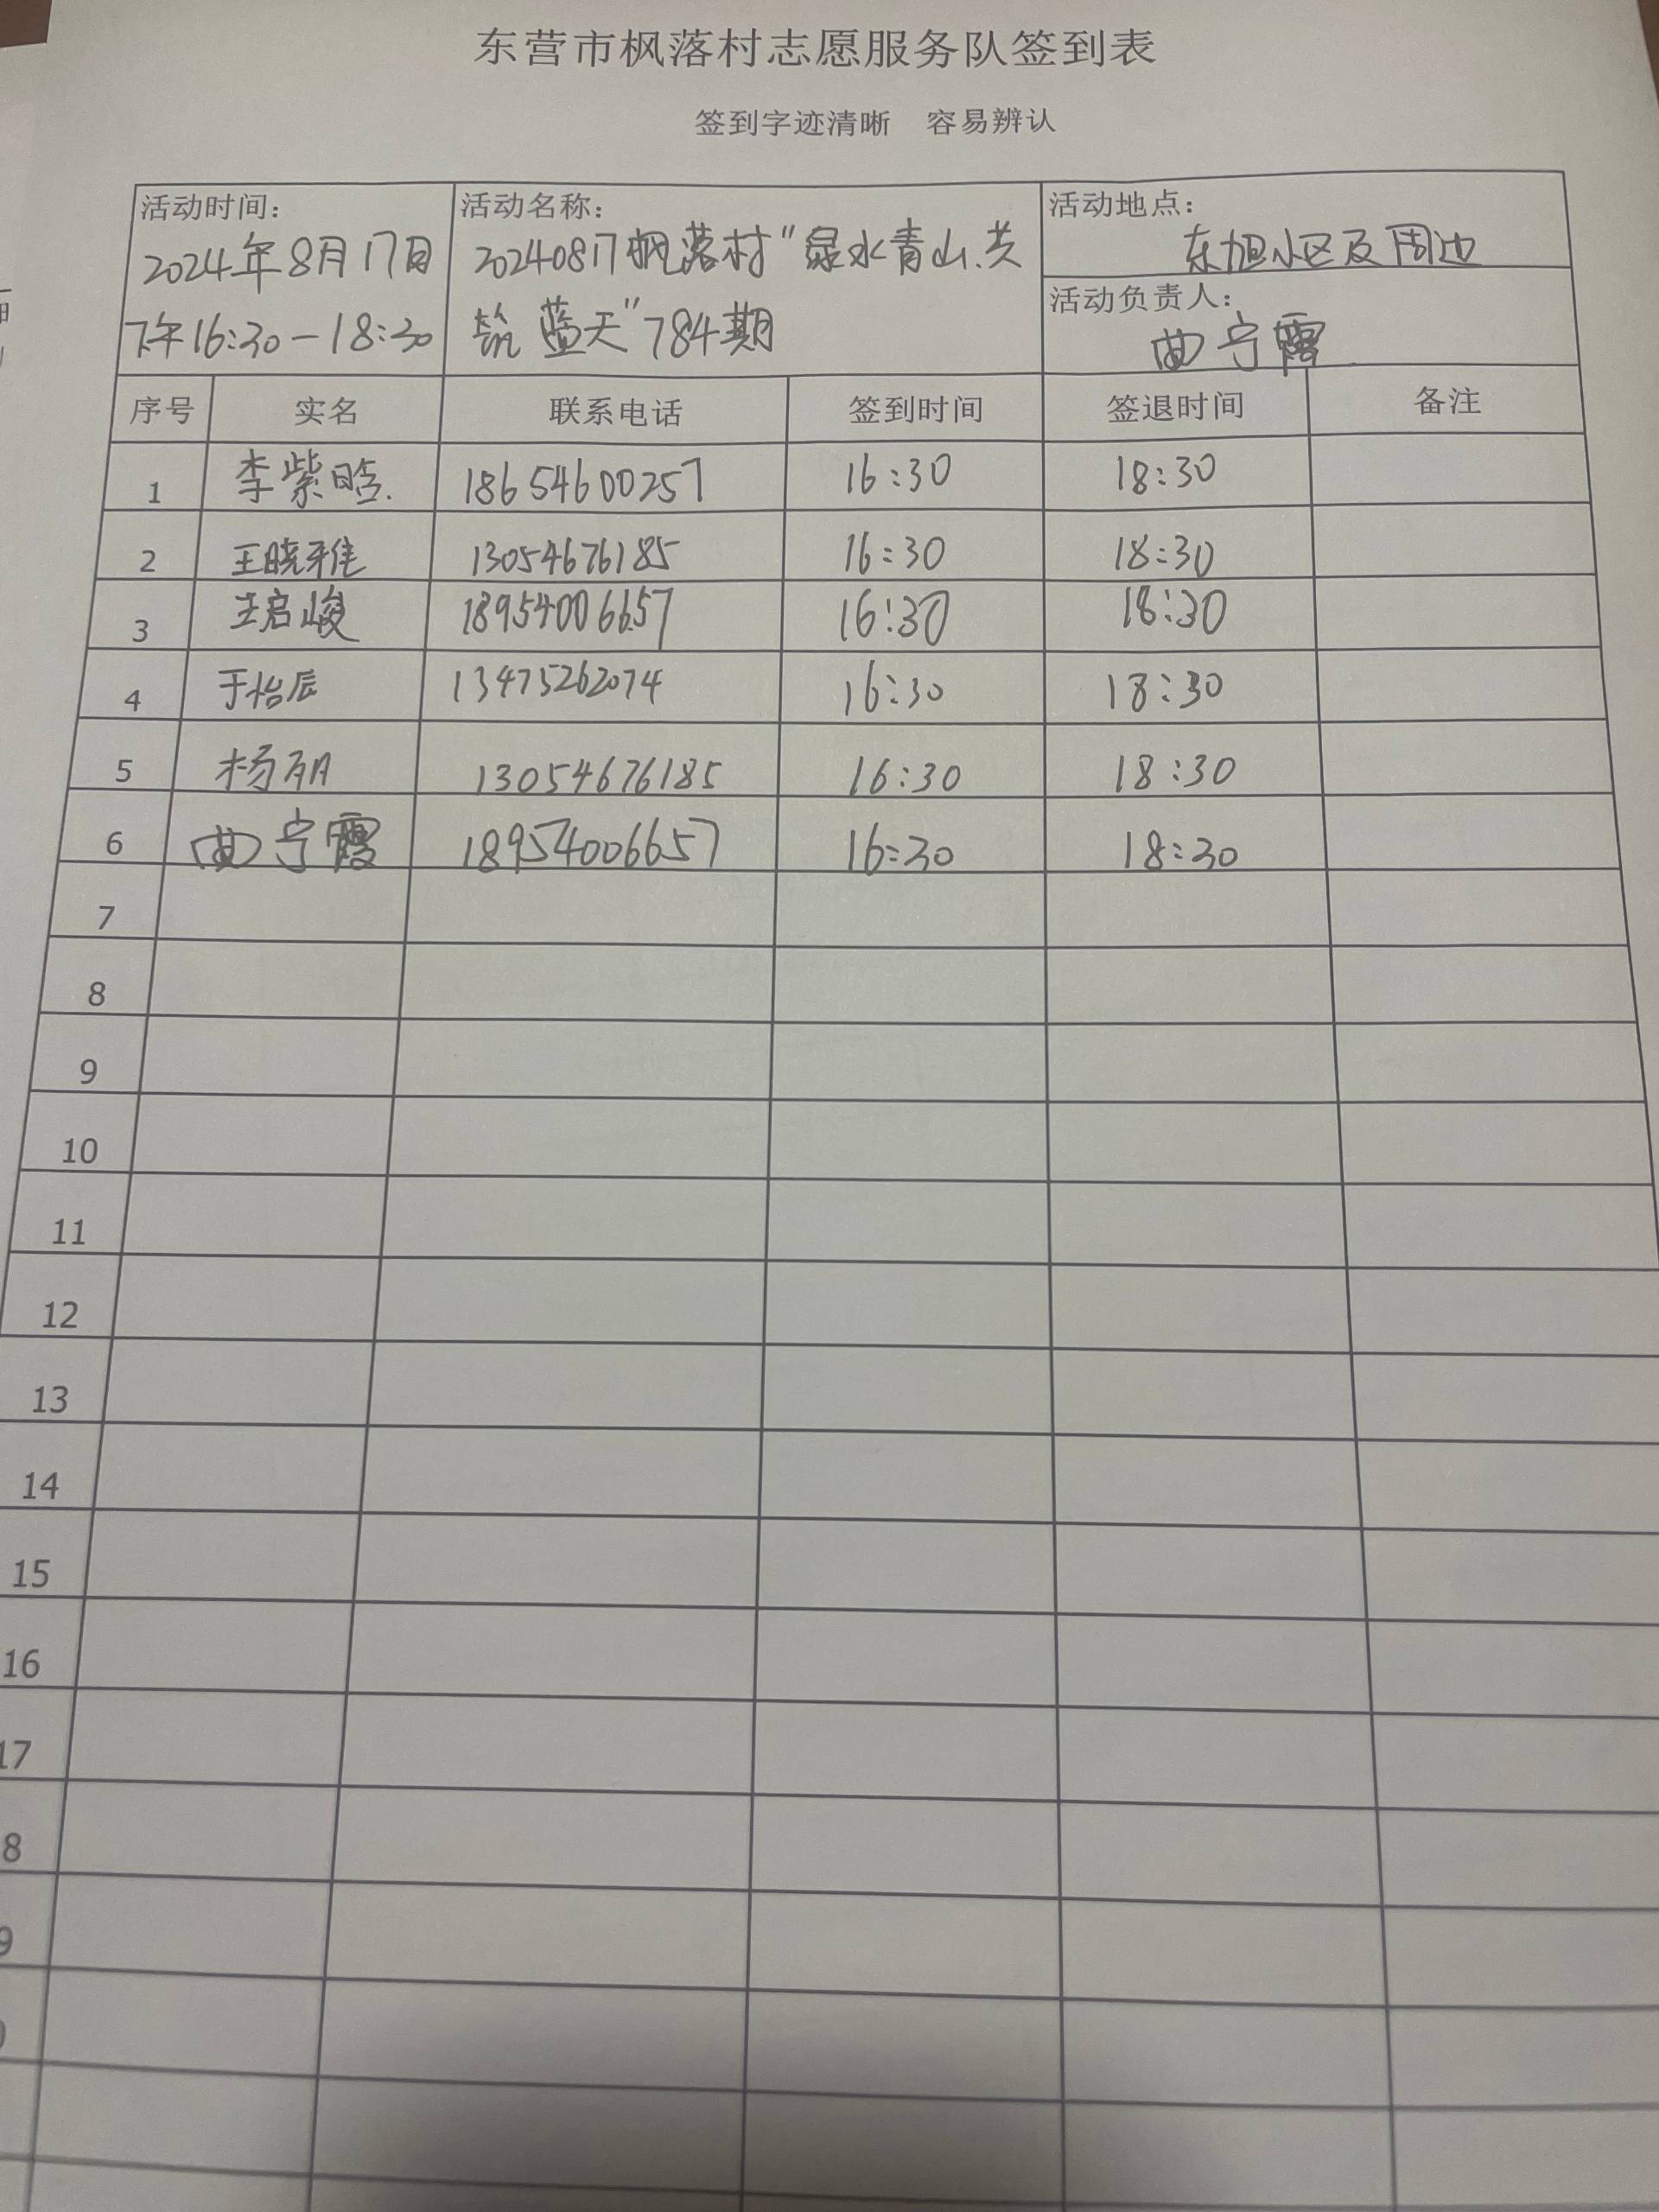 东营市枫落村志愿服务队签到表
签到字迹清晰 容易辨认
活动时间: 活动名称: 活动地点:
2024年8月17日 20240817枫落村“绿水青山.共 东旭小区及周边
下午16:30-18:30 筑蓝天”784期 活动负责人:
曲宁霞
序号 实名 联系电话 签到时间 签退时间 备注
1 李紫晗. 18654600257 16:30 18:30
2 王晓雅 13054676185 16:30 18:30
3 王启峻 18954006657 16:30 18:30
4 于怡辰 13475262074 16:30 18:30
5 杨丽 13054676185 16:30 18:30
6 曲宁霞 18954006657 16:30 18:30
7
8
9
10
11
12
13
14
15
16
17
8
9